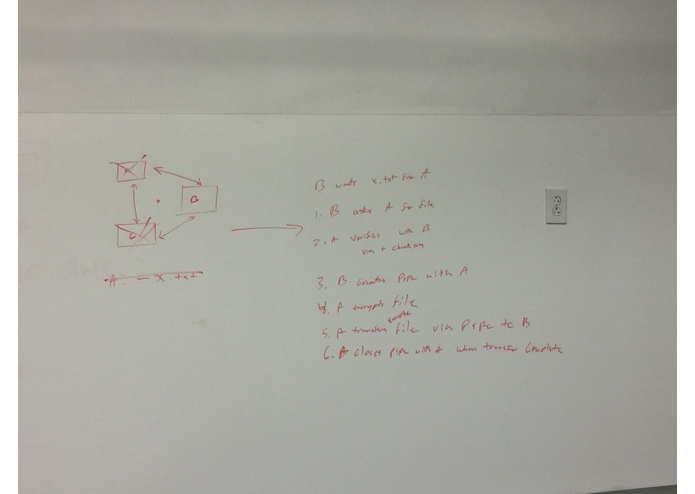 A
B
C
A: - X txt
B wants x.txt from A
1. B asks A for file
2. A verifies with B
3. B creates pipe with A
4. A encrypts file
5. A transfers file via Pipe to B
6. B closes pipe with A when transfer complete